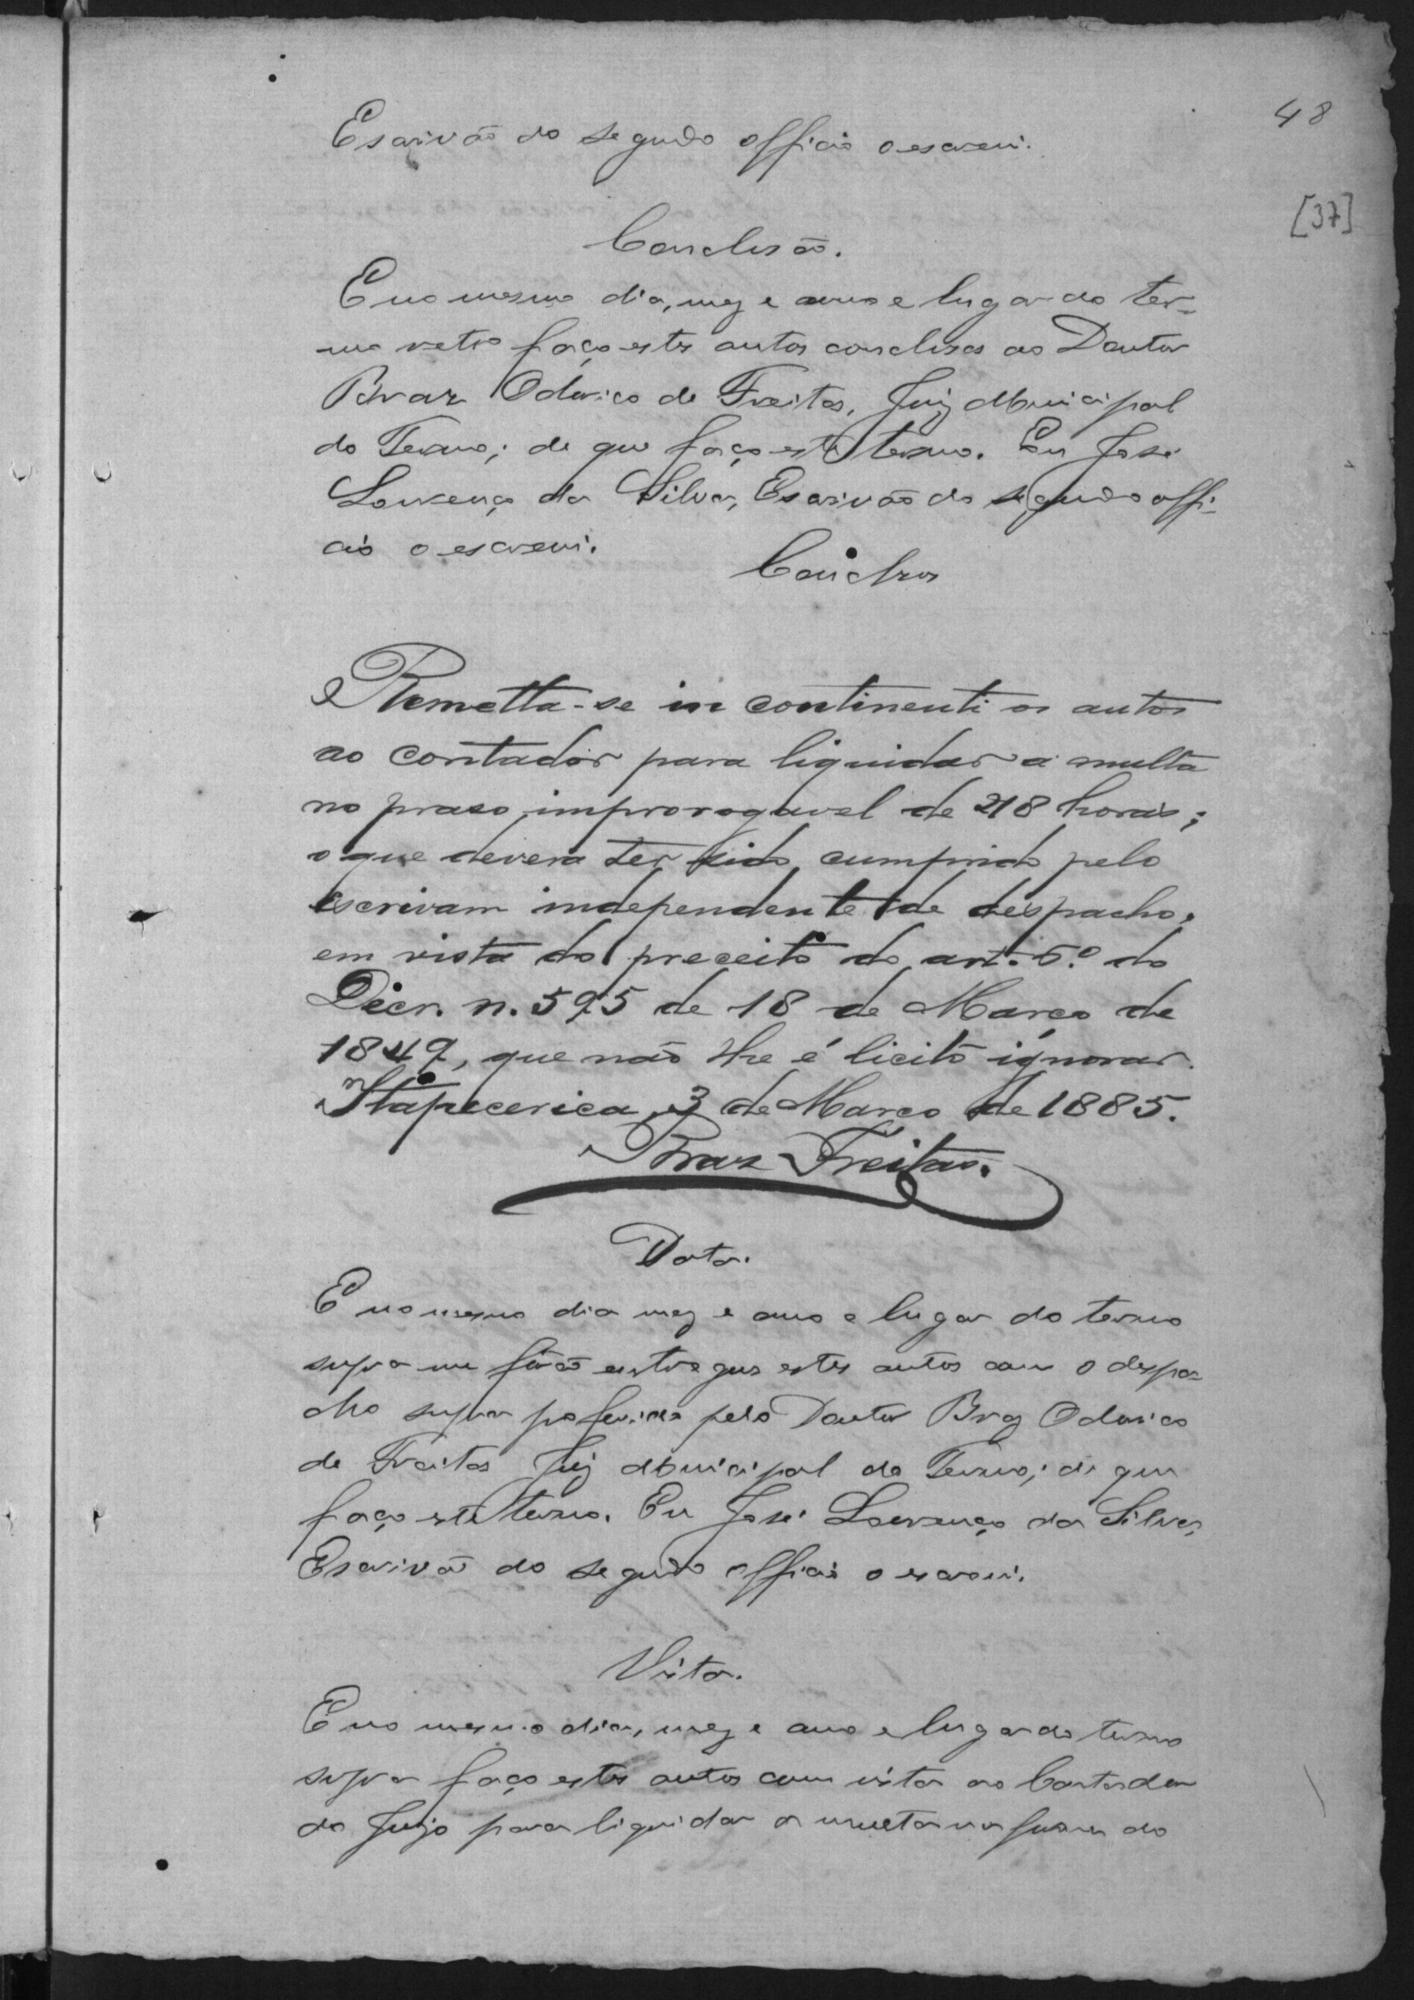 48
Escrivão do segundo officio o escrevi.
[37]
Conclusão.
E no mesmo dia, mez e anno e lugar do ter-
mo retro faço estes autos conclusos ao Doutor
Braz Odorico de Freitas, Juiz Municipal
do Termo; de que faço este termo. Eu José
Lourenço da Silva, Escrivão do segundo offi-
cio o escrevi.
Conclusos
Remetta-se in continenti os autos
ao contador para liquidar a multa
no praso improrogavel de 48 horas;
o que devera ter sido cumprido pelo
escrivam independente de despacho,
em vista do preceito do art. 5.º do
Decr. n. 595 de 18 de Março de
1849, que não lhe é licito ignorar.
Itapecerica, 3 de Março de 1885.
Braz Freitas.
Data.
E no mesmo dia mez e anno e lugar do termo
supra me forão entregues estes autos com o despa-
cho supra proferido pelo Doutor Braz Odorico
de Freitas Juiz Municipal do Termo; de que
faço este termo. Eu José Lourenço da Silva,
Escrivão do segundo officio o escrevi.
Vista.
E no mesmo dia, mez e anno e lugar do termo
supra faço estes autos com vista ao Contador
do Juizo para liquidar a multa na forma do